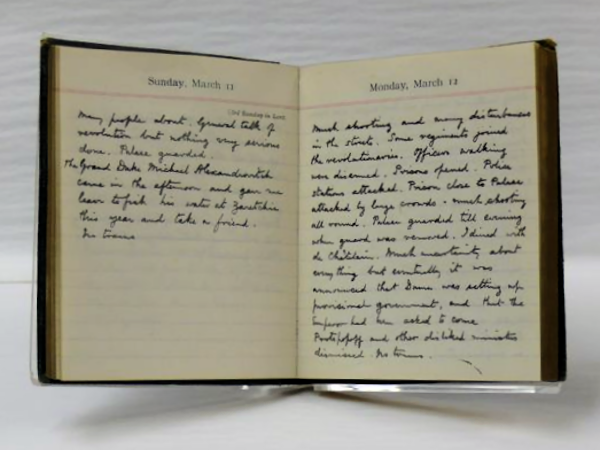 Sunday, March 11
(3rd Sunday in Lent)
Many people about. General talk of
revolution but nothing very serious
done. Palace guarded.
The Grand Duke Michael Alexandrovitch
came in the afternoon and gave me
leave to fish his water at Zaretchie
this year and take a friend.
No trams
Monday, March 12
Much shooting and many disturbances
in the streets. Some regiments joined
the revolutionaries. Officers walking
were disarmed. Prisons opened. Police
stations attacked. Prison close to Palace
attacked by large crowds - much shooting
all round. Palace guarded till evening
when guard was removed. I dined with
de Châtelain. Much uncertainty about
everything but eventually it was
announced that Duma was setting up
provisional government, and that the
Emperor had been asked to come
Protopopoff and other disliked ministers
dismissed. No trams.